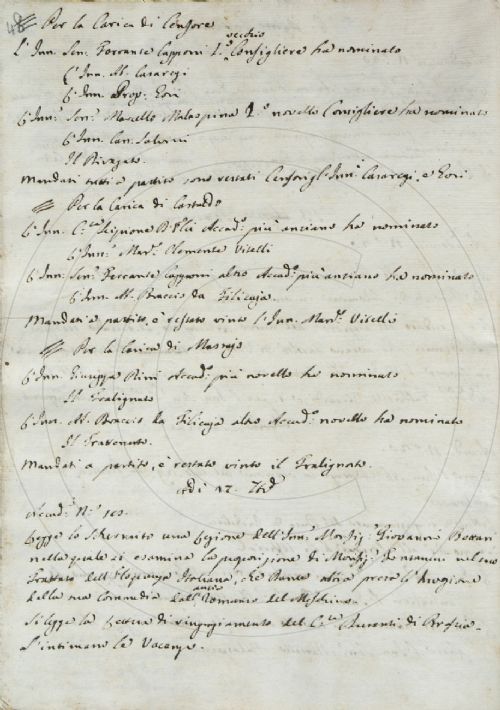 48
Per la Carica di Censore
L'Inn. Sen. Ferrante Capponi 1.º vecchio Consigliere ha nominato
L'Inn. Ab. Casaregi
L'Inn. Prop. Gori
L'Inn. Sen. Marcello Malaspina 1.º novello Consigliere ha nominato
L'Inn. Can. Salvini
Il Ripgato.
Mandati tutti a partito sono restati Censori gl'Inn. Casaregi, e Gori.
Per la Carica di Castaldo
L'Inn. Accad. più anziano ha nominato
L'Inn. Mar. Clemente Vitelli
L'Inn. Sen. Ferrante Capponi altro Accad. più anziano ha nominato
L'Inn. Ab. Braccio da Filicaja.
Mandati a partito, è restato vinto l'Inn. Mar. Vitelli
Per la Carica di Massajo
L'Inn. Giuseppe Accad. più novello ha nominato
Il Tralignato
L'Inn. Ab. Braccio da Filicaja altro Accad. novello ha nominato
Il Trattenuto.
Mandati a partito, è restato vinto il Tralignato.
Adi 17.
Accad. N.
Legge lo Schermito una Lezione dell'Inn. Monsig. Giovanni Bottari
nella quale si esamina la supposizione di Monsig. Fontanini nel suo
Trattato dell'Eloquenza Italiana, che Dante abbia preso l'Invenzione
della sua Commedia dall'antico Romanzo del Meschino.
Si legge la Lettera di ringraziamento del di Brescia.
S'intimano le Vacanze.